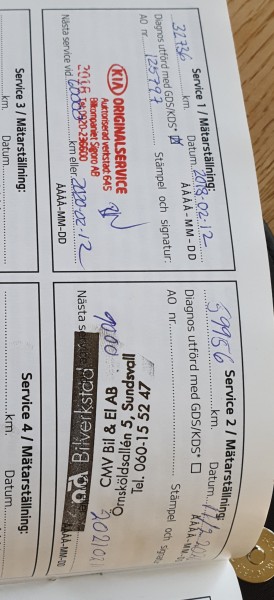 Service 1 / Mätarställning:
32756 km. Datum. 2018-02-12
ÅÅÅÅ-MM-DD
Diagnos utförd med GDS/KDS*
AO nr. 125797
Stämpel och Signatur:
KIA ORIGINALSERVICE
Auktoriserad verkstad 645
Bilkompaniet
Tel. 0920-236600
2018
Nästa service vid 60000 km eller 2020-02-12
ÅÅÅÅ-MM-DD
Service 2 / Mätarställning:
59956 km. Datum.
ÅÅÅÅ-MM-
Diagnos utförd med GDS/KDS*
AO nr.
Stämpel och Signa
CMV Bil & El AB
Örnsköldsallén 5, Sundsvall
Tel. 060-15 52 47
Bilverkstad
Nästa s
ÅÅ-MM-DD
Service 3 / Mätarställning:
km. Datum.
Service 4 / Mätarställning:
km. Datum.